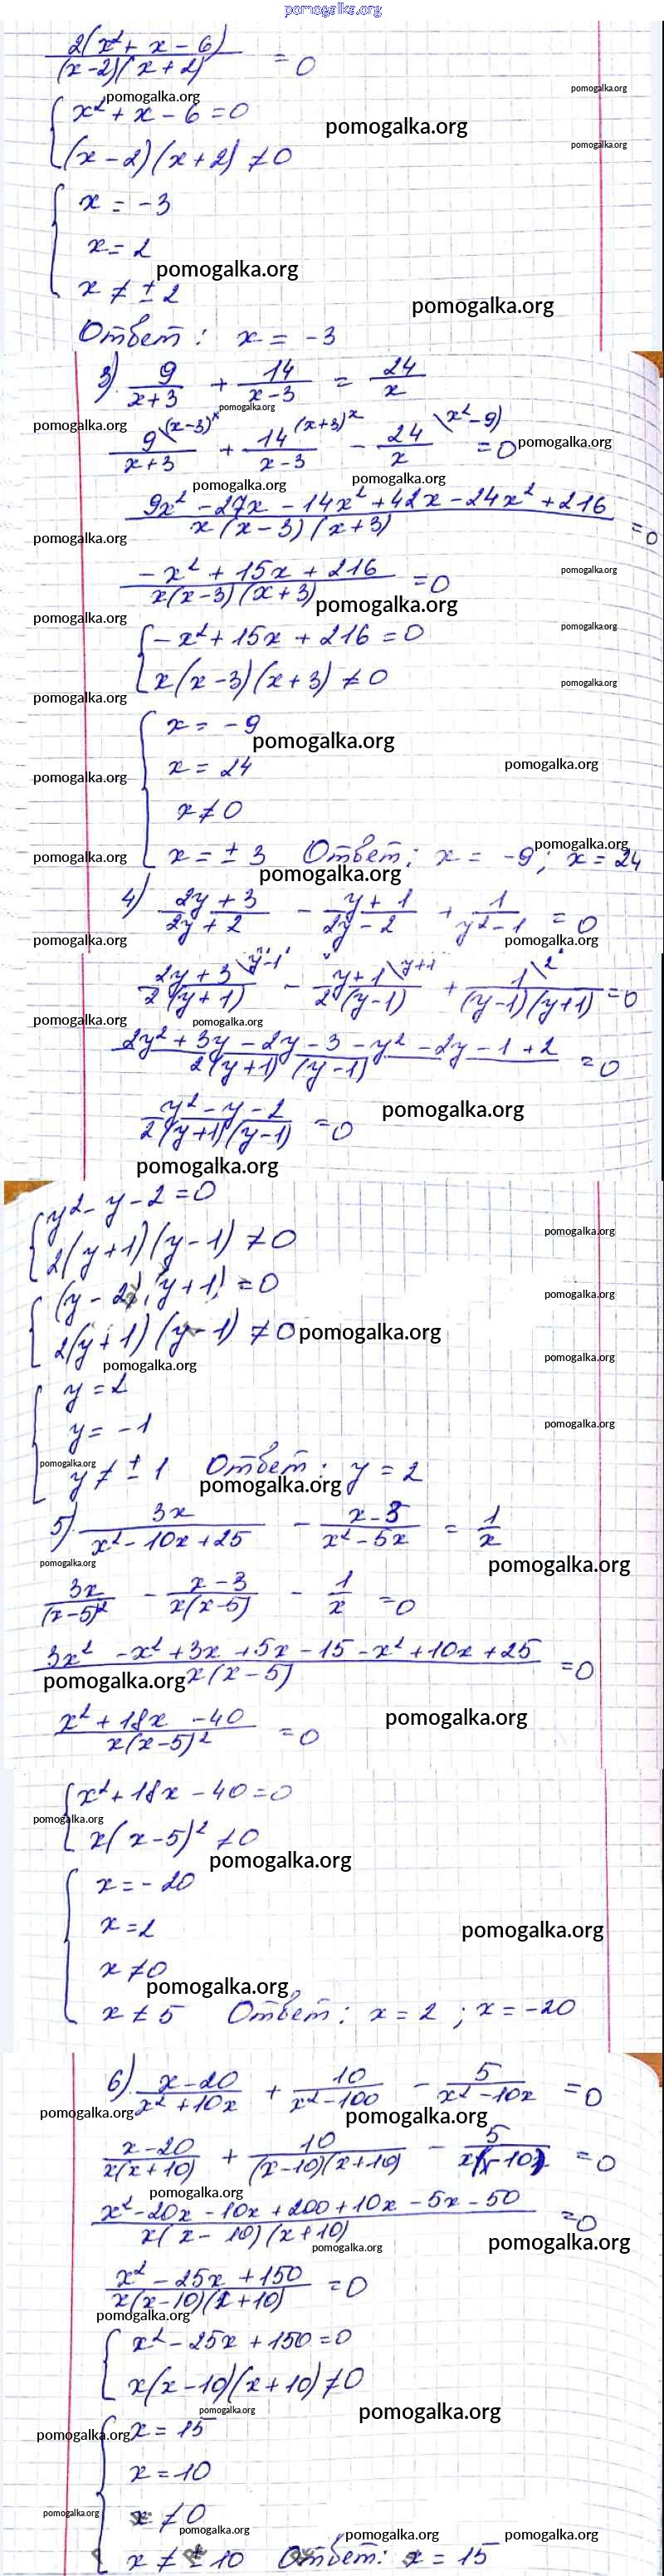 pomogalka.org
2(x² + x - 6) / (x-2)(x+2) = 0
pomogalka.org
pomogalka.org
{ x² + x - 6 = 0
pomogalka.org
pomogalka.org
(x - 2)(x + 2) ≠ 0
{ x = -3
x = 2
pomogalka.org
x ≠ ± 2
pomogalka.org
Ответ: x = -3
3) 9/(x+3) + 14/(x-3) = 24/x
pomogalka.org
pomogalka.org
9\(x-3)x/(x+3) + 14(x+3)x/(x-3) - 24\(x²-9)/x = 0
pomogalka.org
pomogalka.org
pomogalka.org
9x² - 27x - 14x² + 42x - 24x² + 216 / x(x-3)(x+3) = 0
pomogalka.org
-x² + 15x + 216 / x(x-3)(x+3) = 0
pomogalka.org
pomogalka.org
pomogalka.org
{ -x² + 15x + 216 = 0
pomogalka.org
x(x-3)(x+3) ≠ 0
pomogalka.org
pomogalka.org
{ x = -9
pomogalka.org
x = 24
pomogalka.org
pomogalka.org
x ≠ 0
pomogalka.org
x = ± 3 Ответ: x = -9; x = 24
pomogalka.org
pomogalka.org
4) (2y + 3)/(2y + 2) - (y + 1)/(2y - 2) + 1/(y² - 1) = 0
pomogalka.org
pomogalka.org
2y + 3\y-1 / 2(y+1) - y+1\y+1 / 2(y-1) + 1\2 / (y-1)(y+1) = 0
pomogalka.org
pomogalka.org
2y² + 3y - 2y - 3 - y² - 2y - 1 + 2 / 2(y+1)(y-1) = 0
y² - y - 2 / 2(y+1)(y-1) = 0
pomogalka.org
pomogalka.org
{ y² - y - 2 = 0
pomogalka.org
2(y+1)(y-1) ≠ 0
{ (y - 2)(y + 1) = 0
pomogalka.org
2(y+1)(y-1) ≠ 0
pomogalka.org
pomogalka.org
pomogalka.org
{ y = 2
y = -1
pomogalka.org
pomogalka.org
y ≠ ± 1 Ответ: y = 2
pomogalka.org
5) 3x/(x² - 10x + 25) - (x-3)/(x² - 5x) = 1/x
pomogalka.org
pomogalka.org
3x/(x-5)² - (x-3)/x(x-5) - 1/x = 0
3x² - x² + 3x + 5x - 15 - x² + 10x + 25 / x(x-5) = 0
pomogalka.org
x² + 18x - 40 / x(x-5)² = 0
pomogalka.org
{ x² + 18x - 40 = 0
pomogalka.org
x(x-5)² ≠ 0
pomogalka.org
{ x = -20
x = 2
pomogalka.org
x ≠ 0
pomogalka.org
x ≠ 5 Ответ: x = 2; x = -20
6) (x-20)/(x² + 10x) + 10/(x² - 100) - 5/(x² - 10x) = 0
pomogalka.org
pomogalka.org
(x-20)/x(x+10) + 10/(x-10)(x+10) - 5/x(x-10) = 0
pomogalka.org
x² - 20x - 10x + 200 + 10x - 5x - 50 / x(x-10)(x+10) = 0
pomogalka.org
pomogalka.org
x² - 25x + 150 / x(x-10)(x+10) = 0
pomogalka.org
{ x² - 25x + 150 = 0
x(x-10)(x+10) ≠ 0
pomogalka.org
pomogalka.org
pomogalka.org
{ x = 15
x = 10
pomogalka.org
x ≠ 0
pomogalka.org
pomogalka.org
pomogalka.org
x ≠ ± 10 Ответ: x = 15